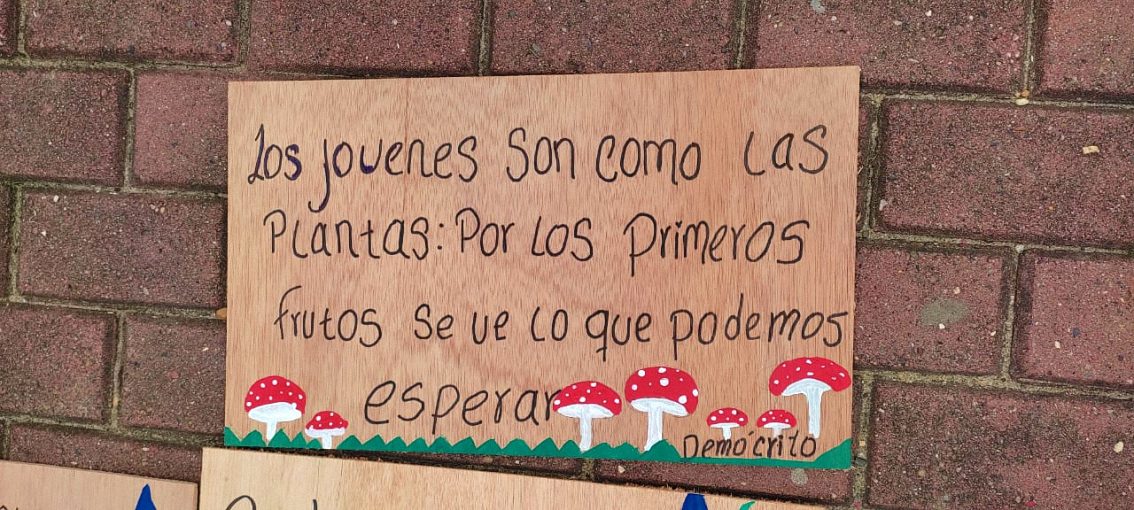 Los jovenes son como las
Plantas: Por los Primeros
frutos se ve lo que podemos
esperar
Demócrito